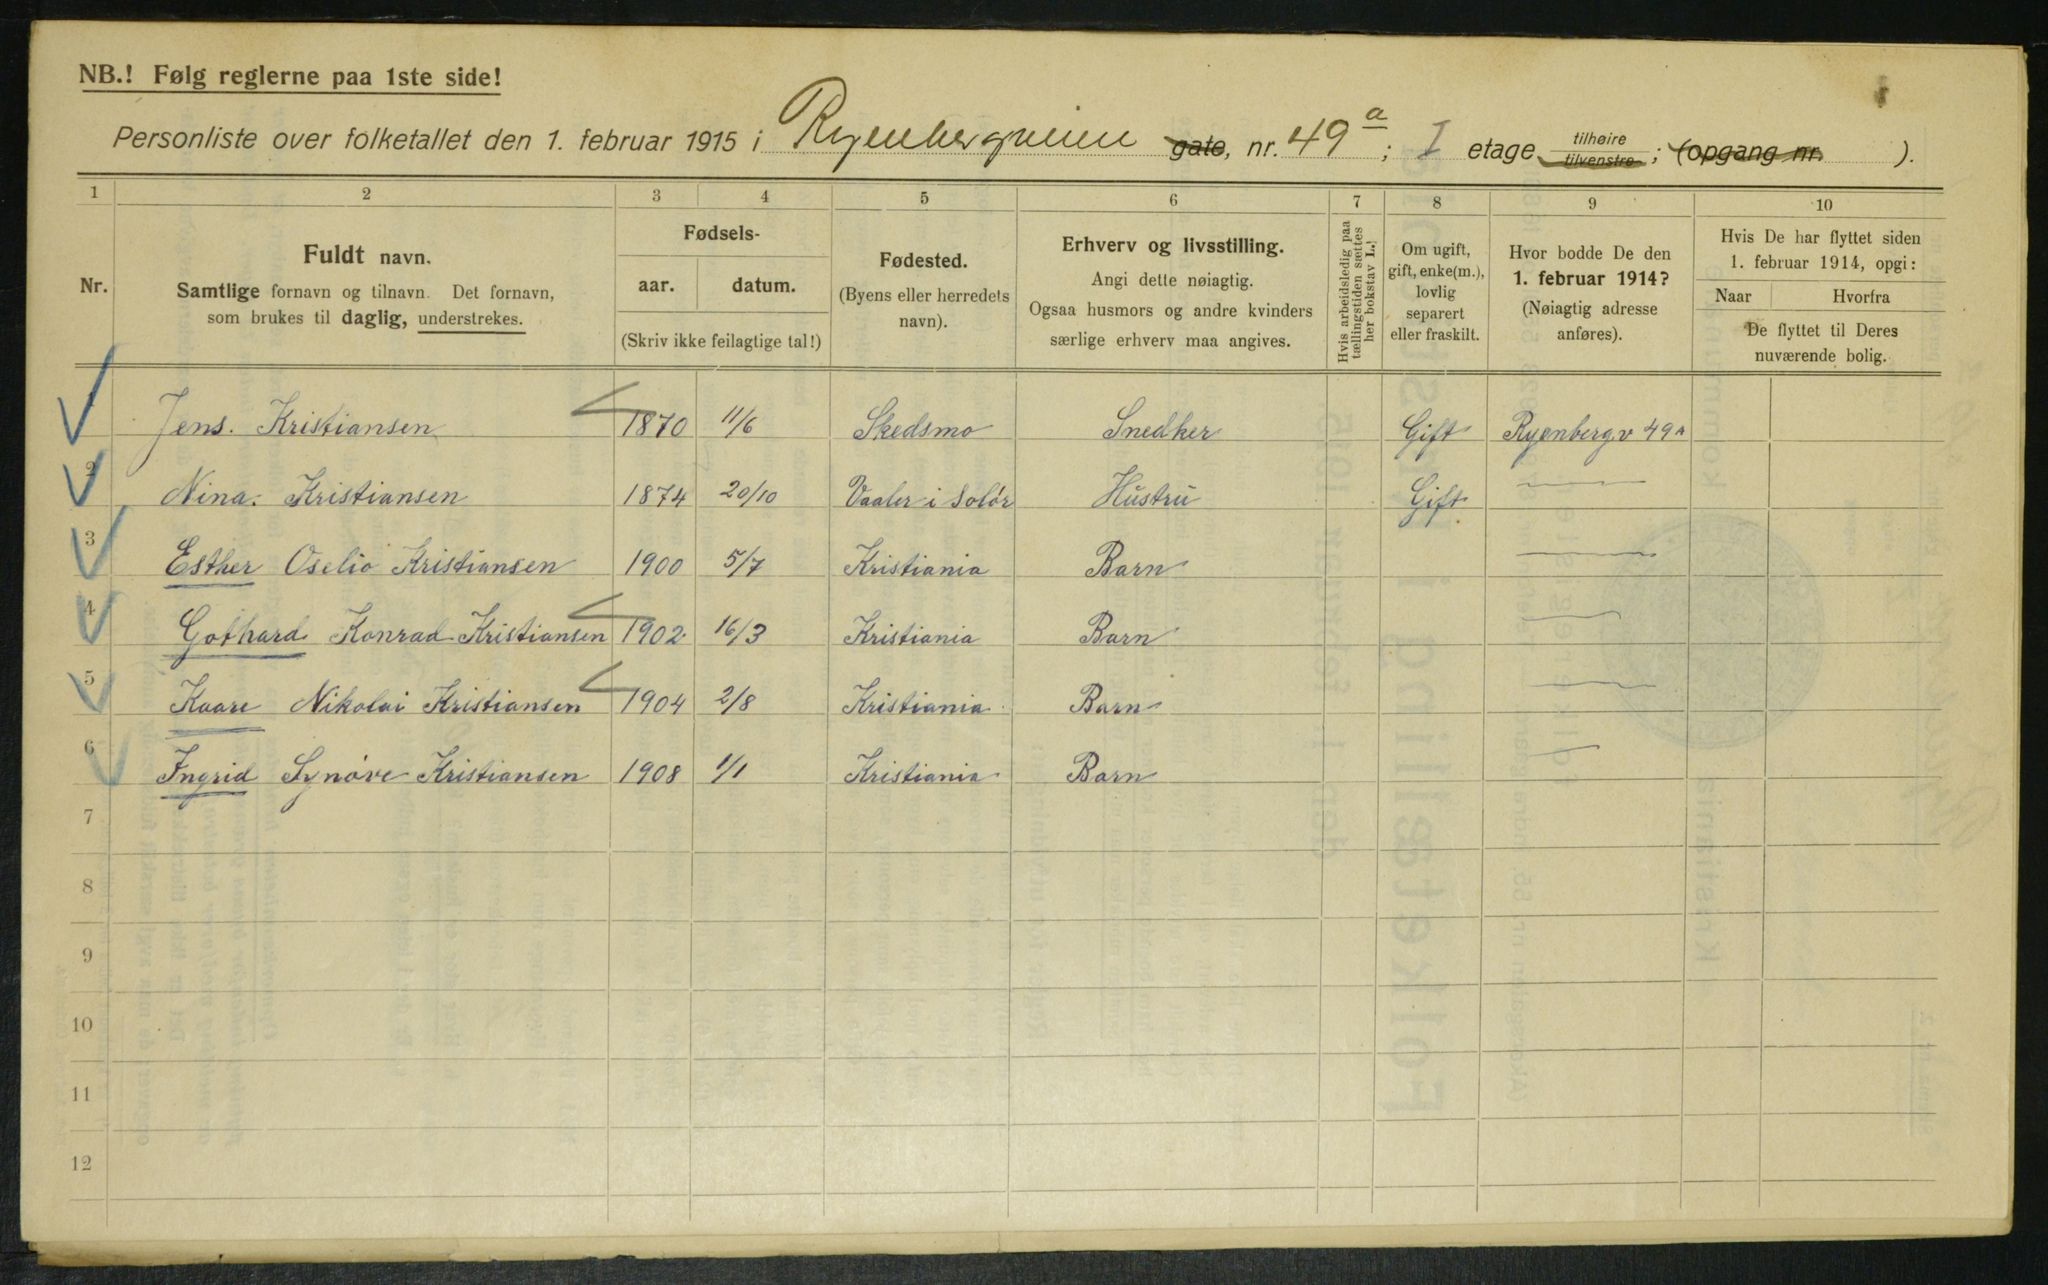 NB.! Følg reglerne paa 1ste side!
Personliste over folketallet den 1. februar 1915 i Ryenbergveien gate, nr. 49 a ; I etage tilhøire tilvenstre ; (opgang nr. ).
1 2 3 4 5 6 7 8 9 10
Nr.
Fuldt navn.
Samtlige fornavn og tilnavn. Det fornavn,
som brukes til daglig, understrekes.
Fødsels-
aar. datum.
(Skriv ikke feilagtige tal!)
Fødested.
(Byens eller herredets
navn).
Erhverv og livsstilling.
Angi dette nøiagtig.
Ogsaa husmors og andre kvinders
særlige erhverv maa angives.
Hvis arbeidsledig paa
tællingstiden sættes
her bokstav L.!
Om ugift,
gift, enke(m.),
lovlig
separert
eller fraskilt.
Hvor bodde De den
1. februar 1914?
(Nøiagtig adresse
anføres).
Hvis De har flyttet siden
1. februar 1914, opgi:
Naar Hvorfra
De flyttet til Deres
nuværende bolig.
1 Jens. Kristiansen 1870 11/6 Skedsmo Snedker Gift Ryenberg.v 49a
2 Nina. Kristiansen 1874 20/10 Vaaler i Solør Hustru Gift —
3 Esther Oselio Kristiansen 1900 5/7 Kristiania Barn —
4 Gothard Konrad Kristiansen 1902 16/3 Kristiania Barn —
5 Kaare Nikolai Kristiansen 1904 2/8 Kristiania Barn —
6 Ingrid Synöve Kristiansen 1908 1/1 Kristiania Barn —
7
8
9
10
11
12